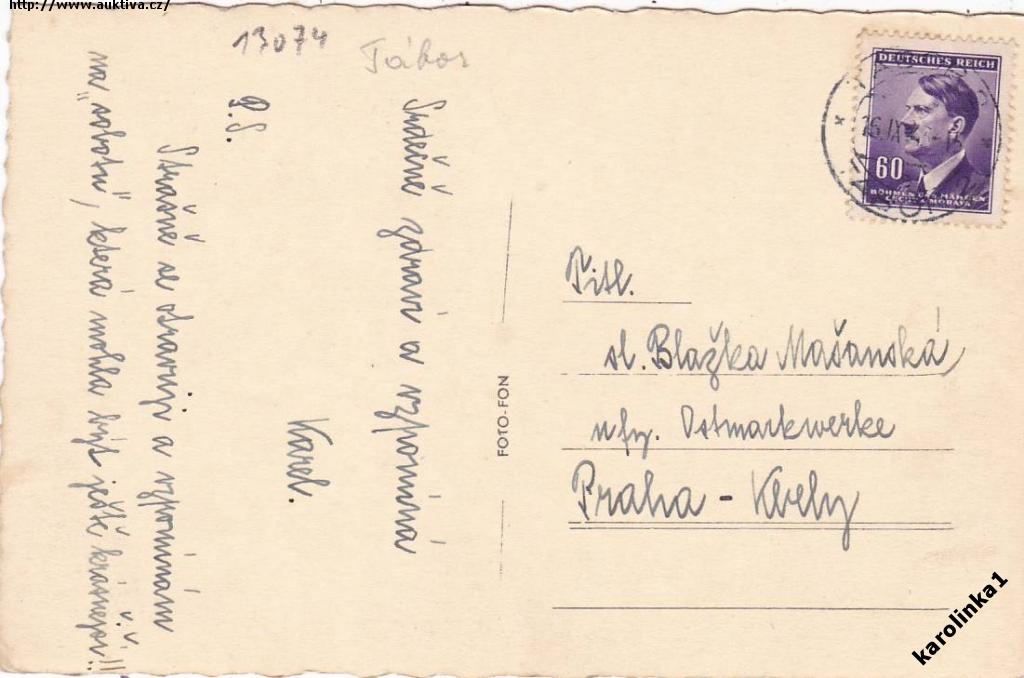 http://www.auktiva.cz/
13074
Tábor
Srdečně zdraví a vzpomíná
Karel.
P.S.
Strašně se otravuji a vzpomínám
na "sobotu", která mohla být ještě krásnejší!!
FOTO-FON
DEUTSCHES REICH
60
BÖHMEN UND MÄHREN
ČECHY A MORAVA
Titl.
sl. Blažka Mašanská
u fy. Ostmarkwerke
Praha - Kbely
karolinka1